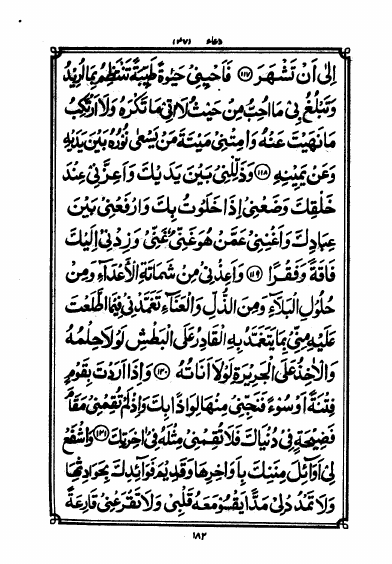 دعاء (٤٧)
اِلٰى اَنْ تَشْهَرَ ﴿١١٧﴾ فَاَحْيِنِيْ حَيٰوةً طَيِّبَةً تَنْتَظِمُ بِمَا اُرِيْدُ
وَتَبْلُغُ بِيْ مَا اُحِبُّ مِنْ حَيْثُ لَا اٰتِيْ مَا تَكْرَهُ وَلَا اَرْتَكِبُ
مَا نَهَيْتَ عَنْهُ وَاَمِتْنِيْ مِيْتَةَ مَنْ يَسْعٰى نُوْرُهُ بَيْنَ يَدَيْهِ
وَعَنْ يَمِيْنِهِ ﴿١١٨﴾ وَذَلِّلْنِيْ بَيْنَ يَدَيْكَ وَاَعِزَّنِيْ عِنْدَ
خَلْقِكَ وَضَعْنِيْ اِذَا خَلَوْتُ بِكَ وَارْفَعْنِيْ بَيْنَ
عِبَادِكَ وَاَغْنِنِيْ عَمَّنْ هُوَ غَنِيٌّ عَنِّيْ وَزِدْنِيْ اِلَيْكَ
فَاقَةً وَفَقْرًا ﴿١١٩﴾ وَاَعِذْنِيْ مِنْ شَمَاتَةِ الْاَعْدَاۤءِ وَمِنْ
حُلُوْلِ الْبَلَاۤءِ وَمِنَ الذُّلِّ وَالْعَنَاۤءِ تَغَمَّدْنِيْ فِيْمَا اطَّلَعْتَ
عَلَيْهِ مِنِّيْ بِمَا يَتَغَمَّدُ بِهِ الْقَادِرُ عَلَى الْبَطْشِ لَوْلَا حِلْمُهُ
وَالْاٰخِذُ عَلَى الْجَرِيْرَةِ لَوْلَا اَنَاتُهُ ﴿١٢٠﴾ وَاِذَا اَرَدْتَ بِقَوْمٍ
فِتْنَةً اَوْ سُوْۤءً فَنَجِّنِيْ مِنْهَا لِوَاذًا بِكَ وَاِذْ لَمْ تُقِمْنِيْ مَقَامَ
فَضِيْحَةٍ فِيْ دُنْيَاكَ فَلَا تُقِمْنِيْ مِثْلَهُ فِيْ اٰخِرَتِكَ ﴿١٢١﴾ وَاشْفَعْ
لِيْ اَوَاۤئِلَ مِنَنِكَ بِاَوَاخِرِهَا وَقَدِيْمَ فَوَاۤئِدِكَ بِحَوَادِثِهَا
وَلَا تَمْدُدْ لِيْ مَدًّا يَقْسُوْ مَعَهُ قَلْبِيْ وَلَا تَقْرَعْنِيْ قَارِعَةً
١٨٢